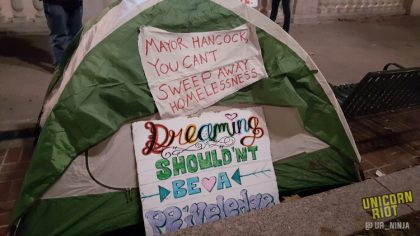 MAYOR HANCOCK,
YOU CAN'T
SWEEP AWAY
HOMELESSNESS
DREAMING
SHOULDN'T
BE A
UNICORN
RIOT
@UR_NINJA